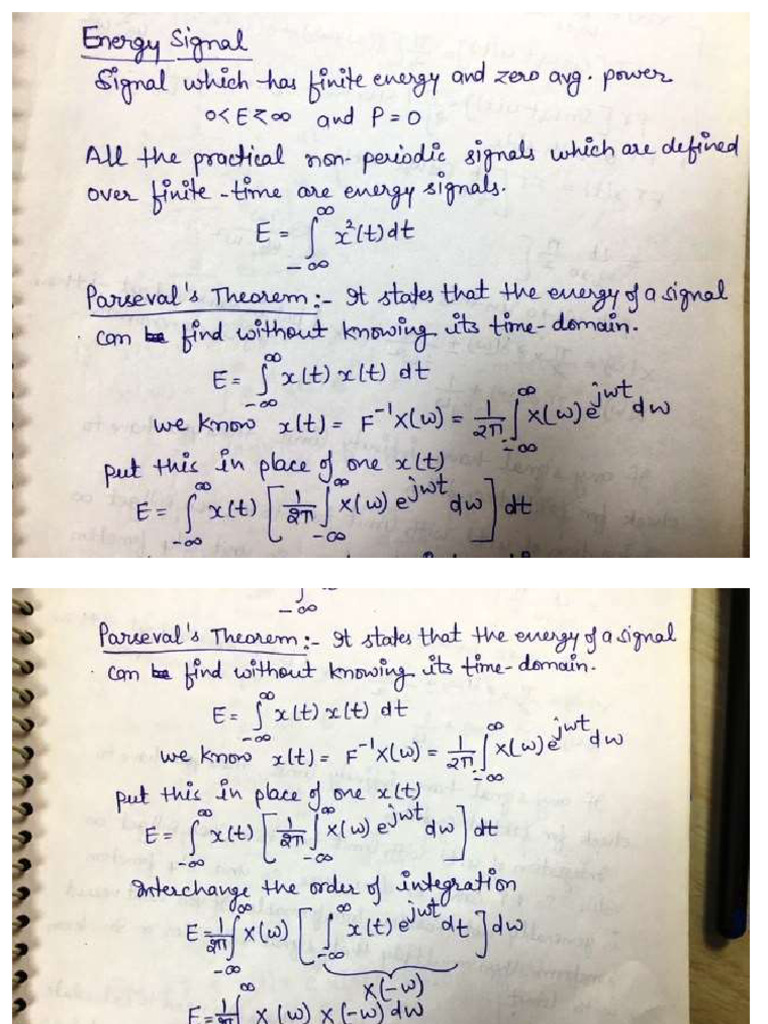 Energy Signal
Signal which has finite energy and zero avg. power
0<E<∞ and P=0
All the practical non-periodic signals which are defined
over finite-time are energy signals.
E = ∫_{-∞}^{∞} x²(t)dt
Parseval's Theorem:- It states that the energy of a signal
can be find without knowing its time-domain.
E = ∫_{-∞}^{∞} x(t) x(t) dt
we know x(t) = F⁻¹X(ω) = 1/2π ∫_{-∞}^{∞} X(ω)e^{jωt}dω
put this in place of one x(t)
E = ∫_{-∞}^{∞} x(t) [1/2π ∫_{-∞}^{∞} X(ω) e^{jωt} dω] dt
-∞
Parseval's Theorem:- It states that the energy of a signal
can be find without knowing its time-domain.
E = ∫_{-∞}^{∞} x(t) x(t) dt
we know x(t) = F⁻¹X(ω) = 1/2π ∫_{-∞}^{∞} X(ω)e^{jωt}dω
put this in place of one x(t)
E = ∫_{-∞}^{∞} x(t) [1/2π ∫_{-∞}^{∞} X(ω) e^{jωt} dω] dt
Interchange the order of integration
E = 1/2π ∫_{-∞}^{∞} X(ω) [∫_{-∞}^{∞} x(t) e^{jωt} dt] dω
X(-ω)
E = 1/2π ∫^{∞} X(ω) X(-ω) dω